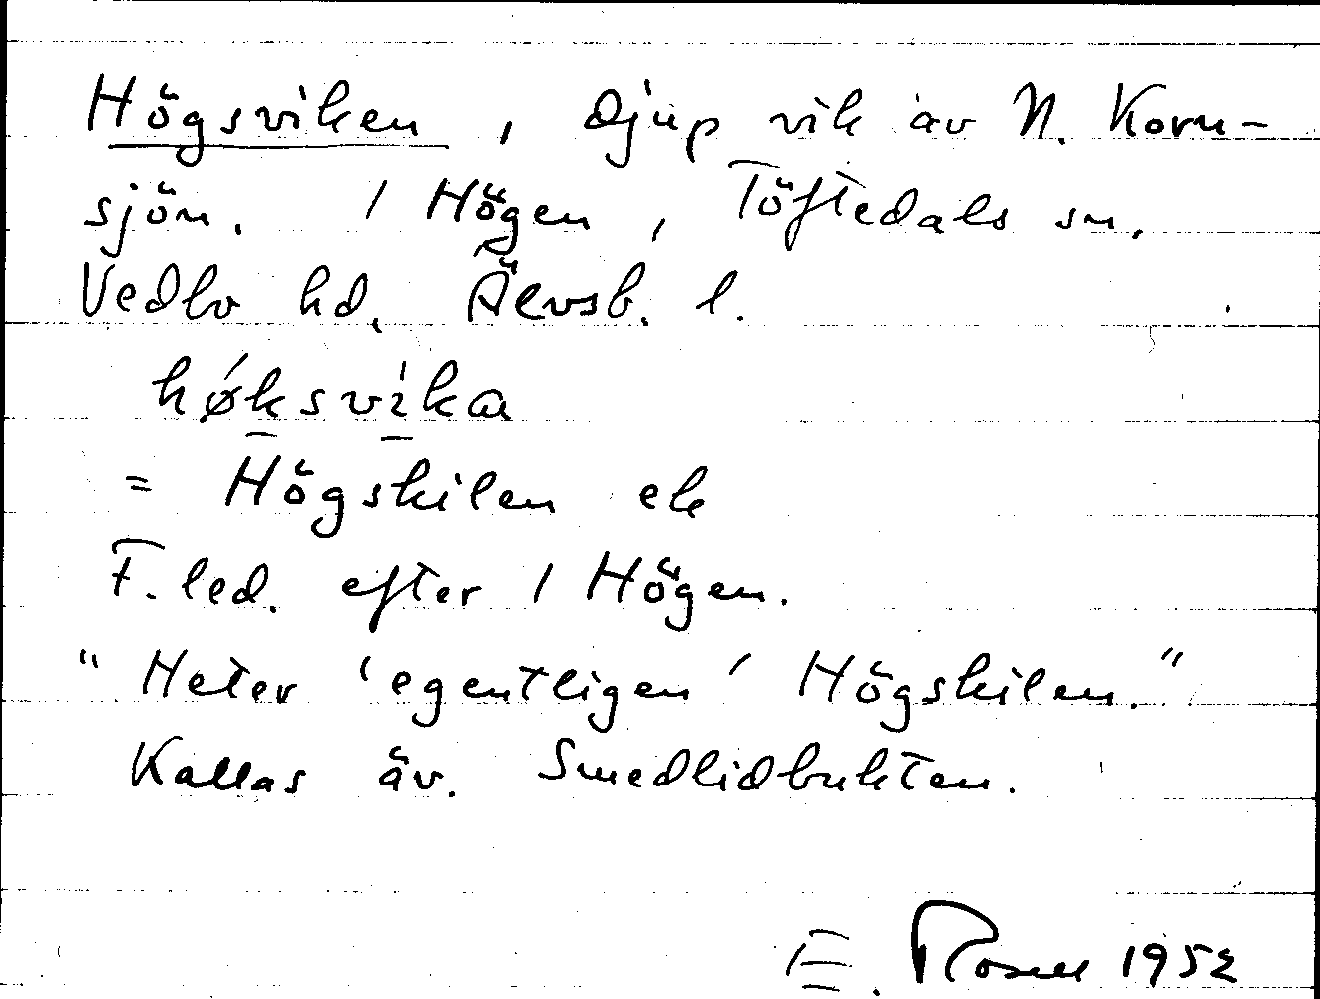 Högsviken, djup vik av N. Korn-
sjön. / Högen, Töftedals sn,
Vedbo hd, Älvsb. l.
høksvika
= Högskilen ek
F. led. efter / Högen.
"Heter 'egentligen' Högskilen."
Kallas äv. Smedlidbukten.
E. Rosell 1952